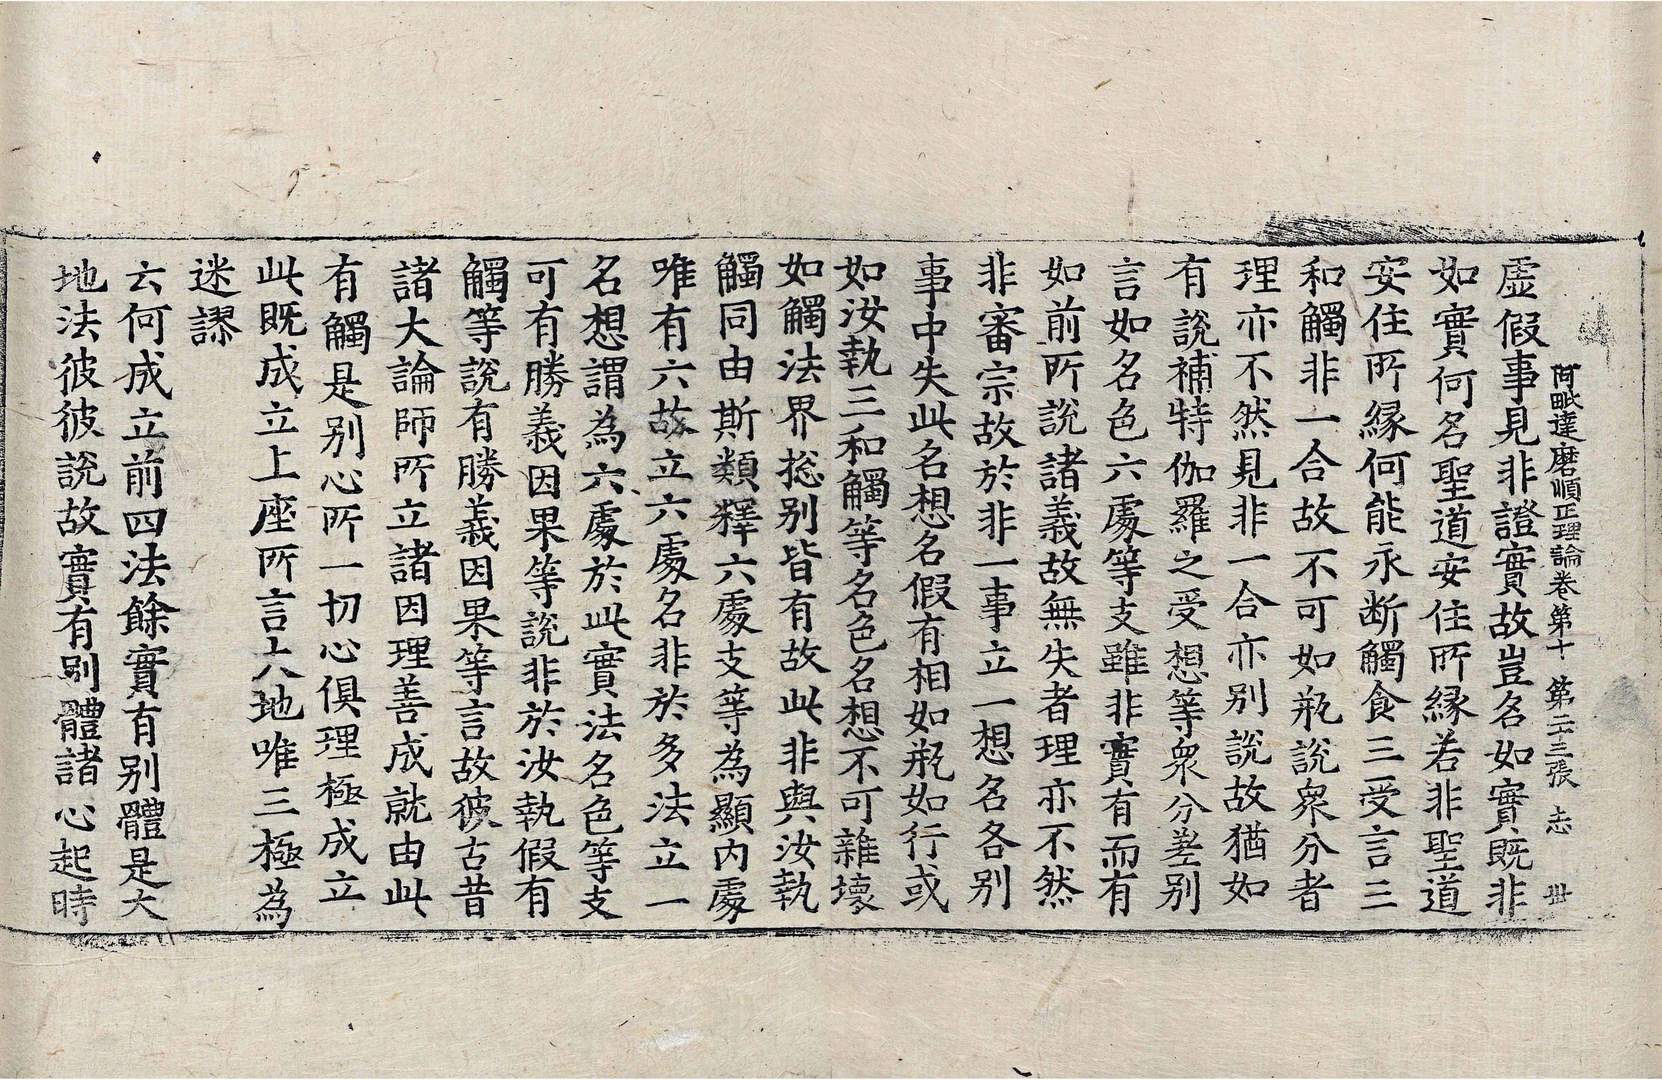 阿毗達磨順正理論卷第十 第二十三張 志 冊
虛假事見非證實故豈名如實旣非
如實何名聖道安住所緣若非聖道
安住所緣何能永断觸食三受言三
和觸非一合故不可如瓶說衆分者
理亦不然見非一合亦別說故猶如
有說補特伽羅之受想等衆分差別
言如名色六處等支雖非實有而有
如前所說諸義故無失者理亦不然
非審宗故於非一事立一想名各別
事中失此名想名假有相如瓶如行或
如汝執三和觸等名色名想不可雜壞
如觸法界捴別皆有故此非與汝執
觸同由斯類釋六處支等為顯內處
唯有六故立六處名非於多法立一
名想謂為六處於此實法名色等支
可有勝義因果等說非於汝執假有
觸等說有勝義因果等言故彼古昔
諸大論師所立諸因理善成就由此
有觸是別心所一切心俱理極成立
此旣成立上座所言大地唯三極為
迷謬
云何成立前四法餘實有別體是大
地法彼彼說故實有別體諸心起時